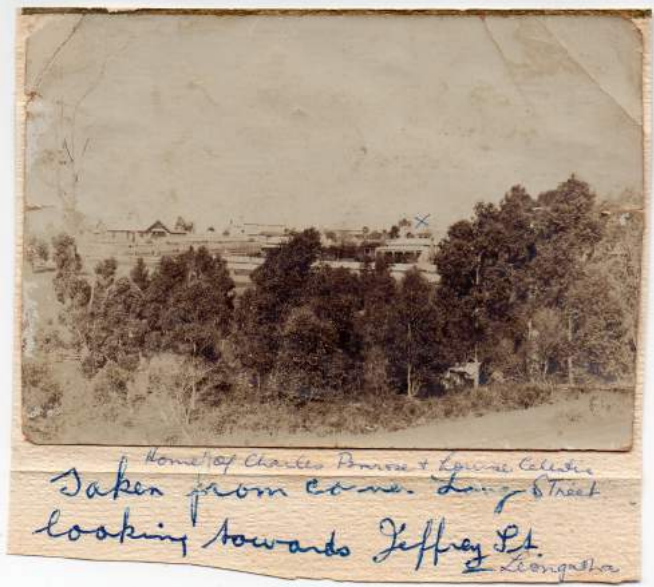 X
Home of Charles Penrose + Louise Celestie
Taken from corner Long Street
looking towards Jeffrey St.
Leongatha